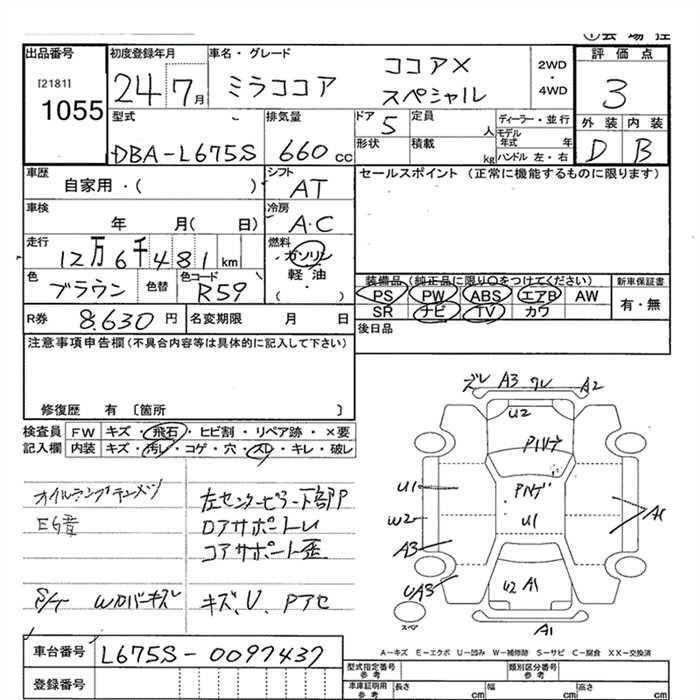 出品番号
[2181]
1055
初度登録年月
24 7月
車名・グレード
ミラココア
ココアX
スペシャル
2WD
・
4WD
評価点
3
外装 内装
D B
型式
DBA-L675S
排気量
660 cc
ドア
5
定員
人
形状
積載
kg
ディーラー・並行
モデル
年式 年
ハンドル 左・右
車歴
自家用・( )
シフト
AT
車検
年 月( 日)
冷房
A・C
走行
12万6千481km
燃料
ガソリン
軽油
( )
色
ブラウン
色替
色コード
R59
セールスポイント (正常に機能するものに限ります)
装備品 (純正品に限り○をつけてください)
PS PW ABS エアB AW
SR ナビ TV カワ
新車保証書
有・無
後日品
R券
8.630 円
名変期限 月 日
注意事項申告欄(不具合内容等は具体的に記入して下さい)
修復歴 有 〔箇所 〕
検査員 FW キズ・飛石・ヒビ割・リペア跡・×要
記入欄 内装 キズ・汚レ・コゲ・穴・スレ・キレ・破レ
左センターピラー下部P
E/G音
コアサポートレ
コアサポート歪
S/T Wカバーキズレ
キズ、U、Pアセ
ズレ A3 ワレ A2
U2
U1
U1
W2
A3
A1
UA3
U2 A1
スペア
A1
A-キズ E-エクボ U-凹み W-補修跡 S-サビ C-腐食 XX-交換済
車台番号
L675S-0097437
登録番号
型式指定番号
参考
類別区分番号
参考
車庫証明用
参考
長さ cm
幅 cm
高さ cm